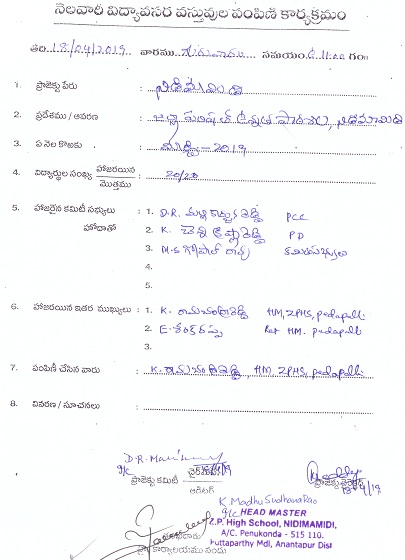 నెలవారీ విద్యావసర వస్తువుల పంపిణి కార్యక్రమం
తేది 18/04/2019 వారము గురువారం సమయం 11:00 గం॥
1. ప్రాజెక్టు పేరు : నిడిమామిడి
2. ప్రదేశము / ఆవరణ : జిల్లా పరిషత్ ఉన్నత పాఠశాల, నిడిమామిడి
3. ఏ నెల కొఱకు : మార్చి - 2019
4. విద్యార్థుల సంఖ్య హాజరయిన / మొత్తము : 20/20
5. హాజరైన కమిటీ సభ్యులు : 1. D.R. మల్లికార్జునరెడ్డి PCC
హోదాతో 2. K. చెన్నక్రిష్ణారెడ్డి PD
3. M.S గోపాల్ రావు
4.
5.
6. హాజరయిన ఇతర ముఖ్యులు : 1. K. రామచంద్రారెడ్డి HM, ZPHS, pedapalli
2. E. శంకరప్ప Ret HM. pedapalli
3.
7. పంపిణీ చేసిన వారు : K. రామచంద్రారెడ్డి, HM, ZPHS, pedapalli
8. వివరణ / సూచనలు :
ప్రాజెక్టు కమిటీ చైర్మన్ ప్రాజెక్టు డైరెక్టర్
ఆడిటర్
K Madhu Sudhana Rao
I/C HEAD MASTER
Z.P. High School, NIDIMAMIDI,
A/C. Penukonda - 515 110.
Puttaparthy Mdl, Anantapur Dist
కార్యాలయము నందు